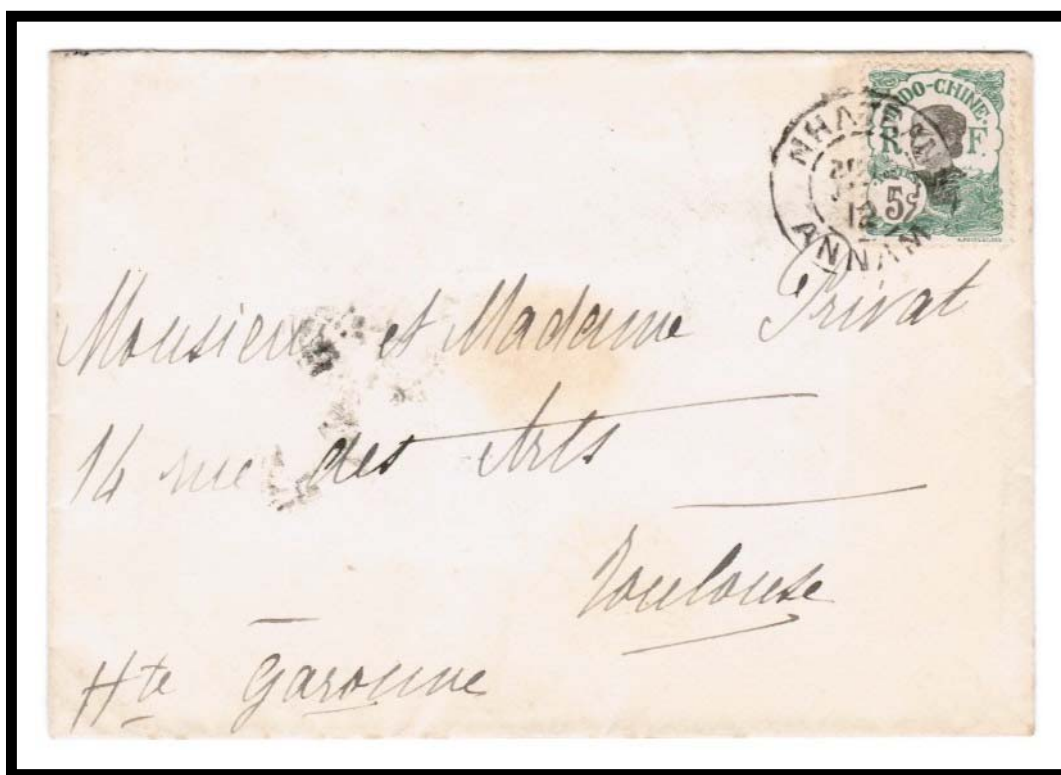 INDO-CHINE.
R F
5c
NHATRANG
12
ANNAM
Monsieur et Madame Privat
14 rue des Arts
Toulouse
Hte Garonne